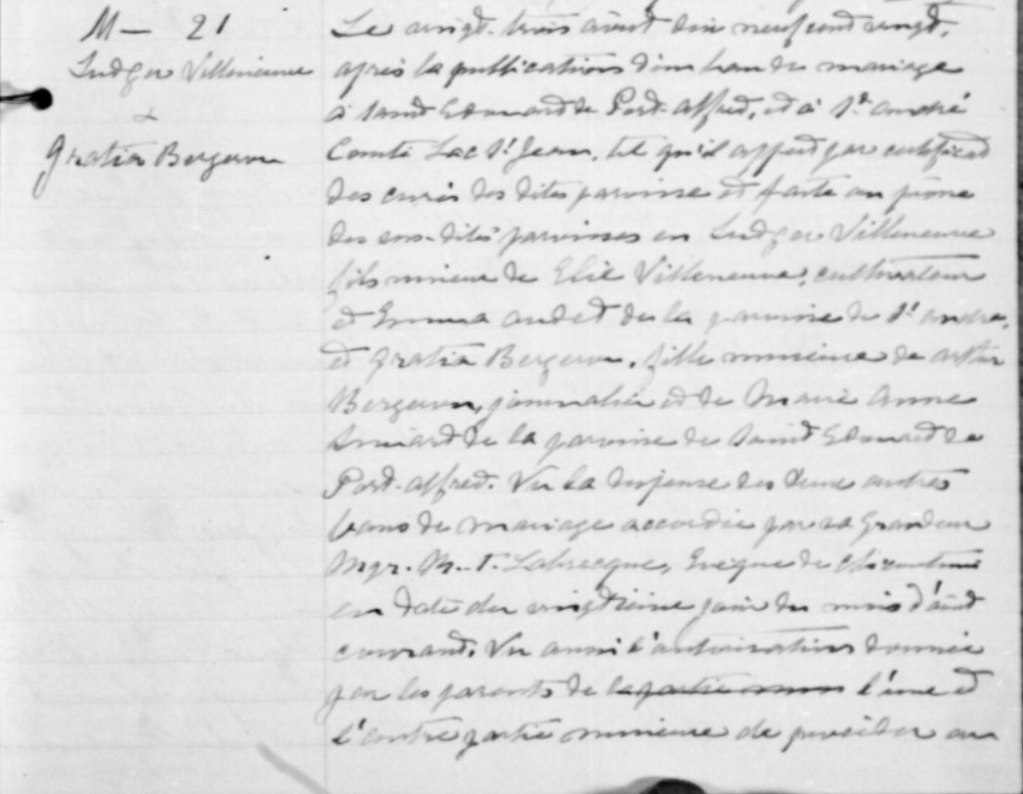 M — 21
Ludger Villeneuve
&
Gratia Bergeron
Le vingt-trois août dix neuf cent vingt,
après la publication d'un ban de mariage
à Saint Edouard de Port-Alfred, et à St. André
Comté Lac St Jean, tel qu'il appert par certificat
des curés des dites paroisse et faite au prône
des sus-dites paroisses en Ludger Villeneuve
fils mineur de Elie Villeneuve, cultivateur
et Emma Audet de la paroisse de St André,
et Gratia Bergeron, fille mineure de
Bergeron, journalier et de Marie Anne
Simard de la paroisse de Saint Edouard de
Port-Alfred. Vu la dispense des deux autres
bans de mariage accordée par sa Grandeur
Mgr. M.-T. Labrecque, Evêque de Chicoutimi
en date du vingtième jour du mois d'août
courant. Vu aussi l'autorisation donnée
par les parents de la partie l'une et
l'autre partie mineure de procéder au